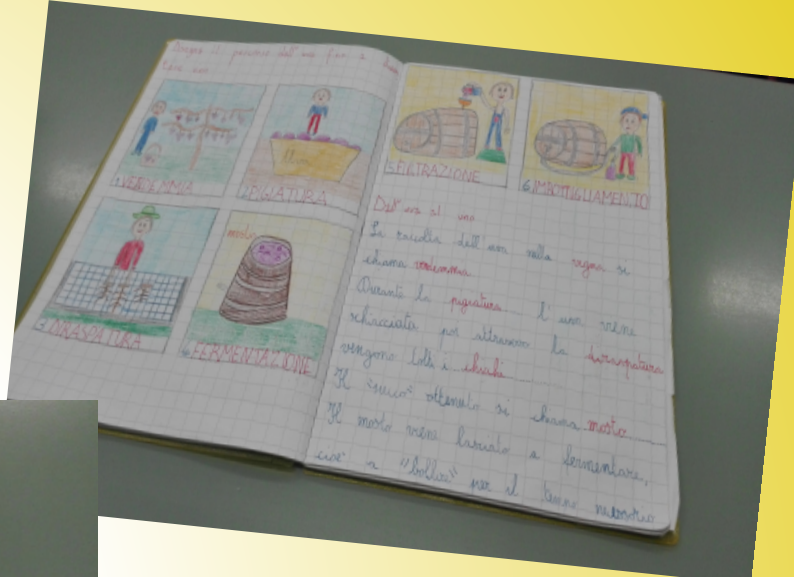 Disegna il percorso dell'uva fino a
1 VENDEMMIA
2 PIGIATURA
Uva
3 DIRASPATURA
mosto
4 FERMENTAZIONE
5 FILTRAZIONE
6 IMBOTTIGLIAMENTO
Dall'uva al vino
La raccolta dell'uva nella vigna si
chiama vendemmia
Durante la pigiatura l'uva viene
schiacciata poi attraverso la diraspatura
vengono tolti i
Il "succo" ottenuto si chiama mosto
Il mosto viene lasciato a fermentare,
cioè a "bollire" per il tempo necessario